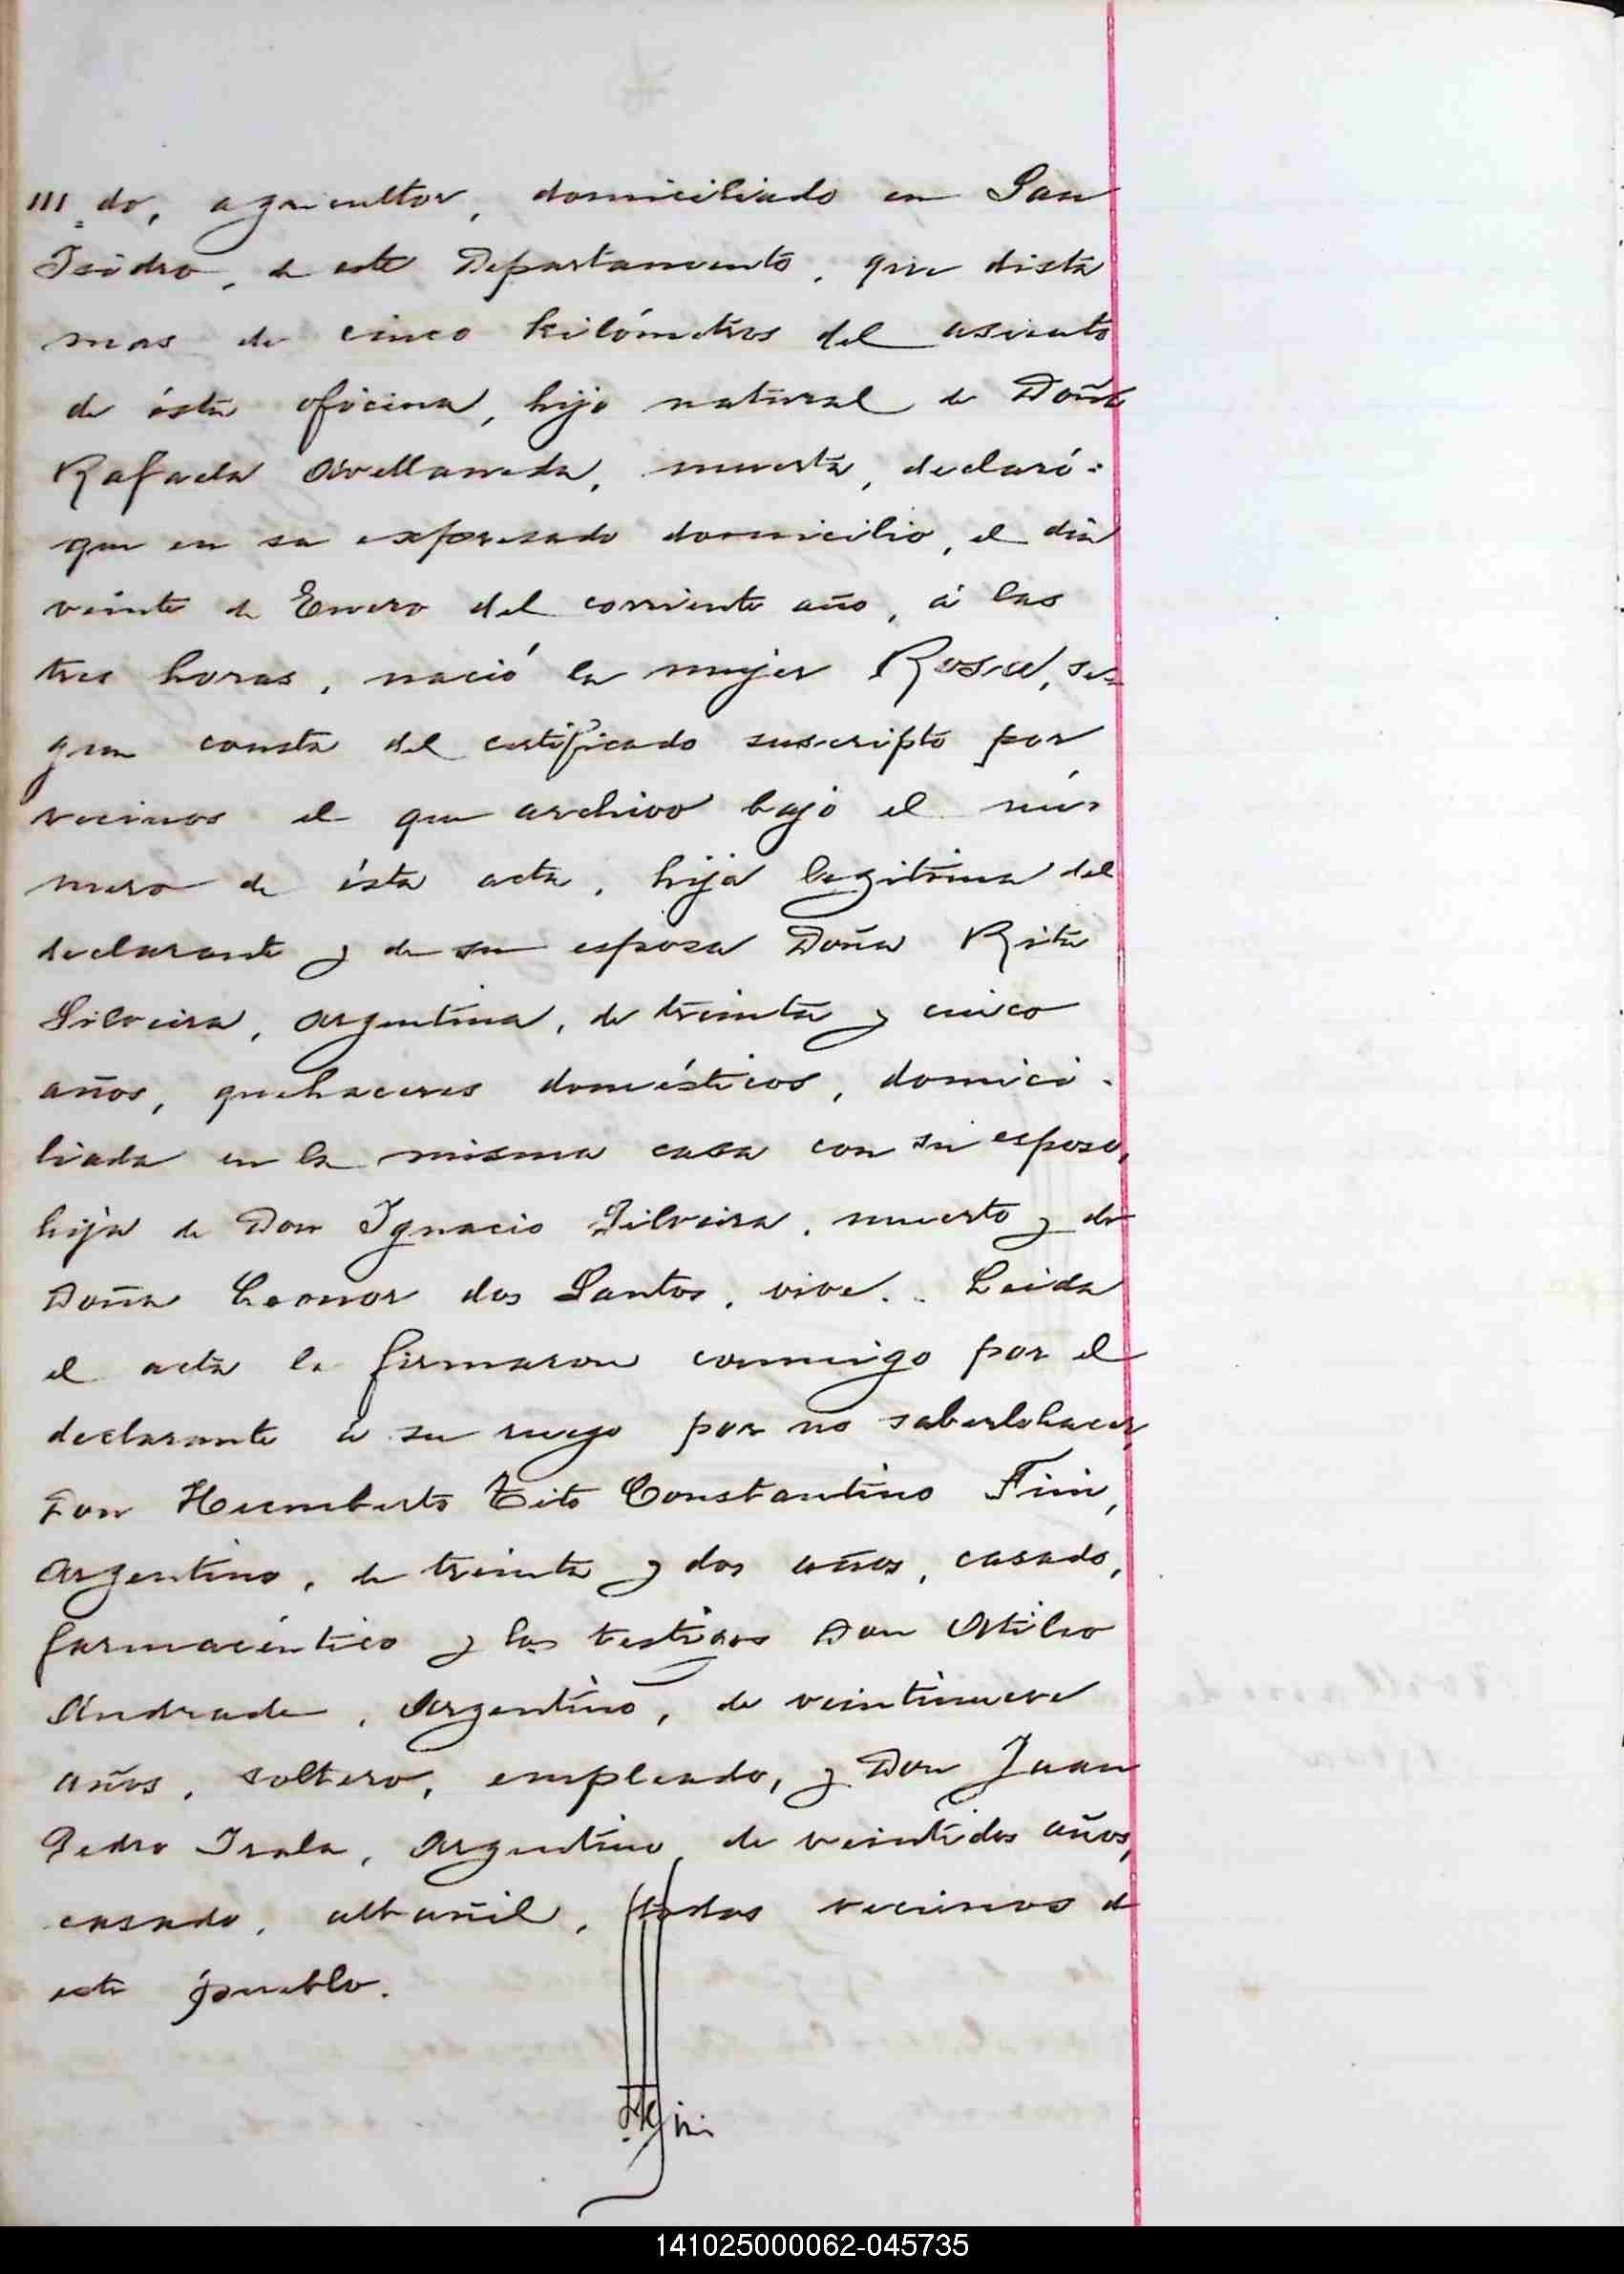 111 do, agricultor, domiciliado en San
Isidro, de este Departamento, que dista
mas de cinco kilómetros del asiento
de ésta oficina, hijo natural de Doña
Rafaela Avellaneda, muerta, declaró:
que en su expresado domicilio, el dia
veinte de Enero del corriente año, á las
tres horas, nació la mujer Rosa, se-
gun consta del certificado suscripto por
vecinos el que archivo bajo el nú-
mero de ésta acta, hija legitima del
declarante y de su esposa Doña Rita
Silveira, Argentina, de treinta y cinco
años, quehaceres domésticos, domici-
liada en la misma casa con su esposo,
hija de Don Ignacio Silveira, muerto y de
Doña Leonor dos Santos, vive. Leida
el acta la firmaron conmigo por el
declarante á su ruego por no saberlo hacer,
Don Humberto Tito Constantino Fini,
Argentino, de treinta y dos años, casado,
farmacéutico y los testigos Don Atilio
Andrade, Argentino, de veintinueve
años, soltero, empleado, y Don Juan
Pedro Irala, Argentino, de veintidos años,
casado, albañil, todos vecinos de
este pueblo.
141025000062-045735